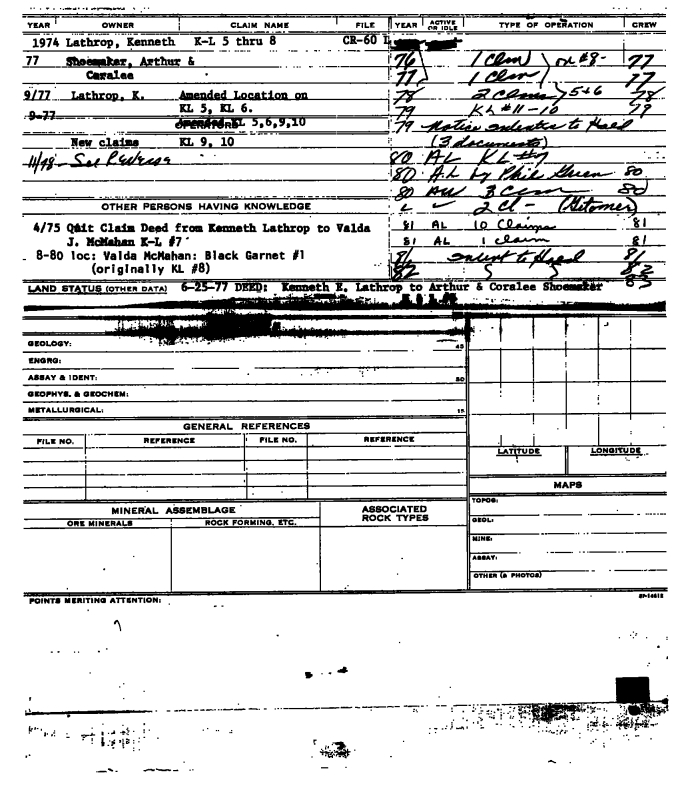 YEAR OWNER CLAIM NAME FILE YEAR ACTIVE OR IDLE TYPE OF OPERATION CREW
1974 Lathrop, Kenneth K-L 5 thru 8 CR-60 L
77 Shoemaker, Arthur & 76 1 Clm on #8- 77
Coralee 77 1 Clm 77
9/77 Lathrop, K. Amended Location on 78 2 Clms 5+6 78
KL 5, KL 6. 79 KL #11-10 79
9-77 OPERATORS KL 5,6,9,10 79 Notice intention to Hold
New claims KL 9, 10 (3 documents)
11/78 - See 80 AL KL #7
80 A.L by Phil 80
80 3 80
OTHER PERSONS HAVING KNOWLEDGE 2 Cl - (Gitomer)
4/75 Quit Claim Deed from Kenneth Lathrop to Valda 81 AL 10 Claims 81
J. McMahan K-L #7 81 AL 1 claim 81
8-80 loc: Valda McMahan: Black Garnet #1 81 intent to Hold 81
(originally KL #8) 82 82
LAND STATUS (OTHER DATA) 6-25-77 DEED: Kenneth E. Lathrop to Arthur & Coralee Shoemaker 83
GEOLOGY: 45
ENGRG:
ASSAY & IDENT: 30
GEOPHYS. & GEOCHEM:
METALLURGICAL: 15
GENERAL REFERENCES
FILE NO. REFERENCE FILE NO. REFERENCE
LATITUDE LONGITUDE
MAPS
MINERAL ASSEMBLAGE ASSOCIATED ROCK TYPES
ORE MINERALS ROCK FORMING, ETC.
TOPOG:
GEOL:
MINE:
ASSAY:
OTHER (& PHOTOS)
POINTS MERITING ATTENTION: SP-14612